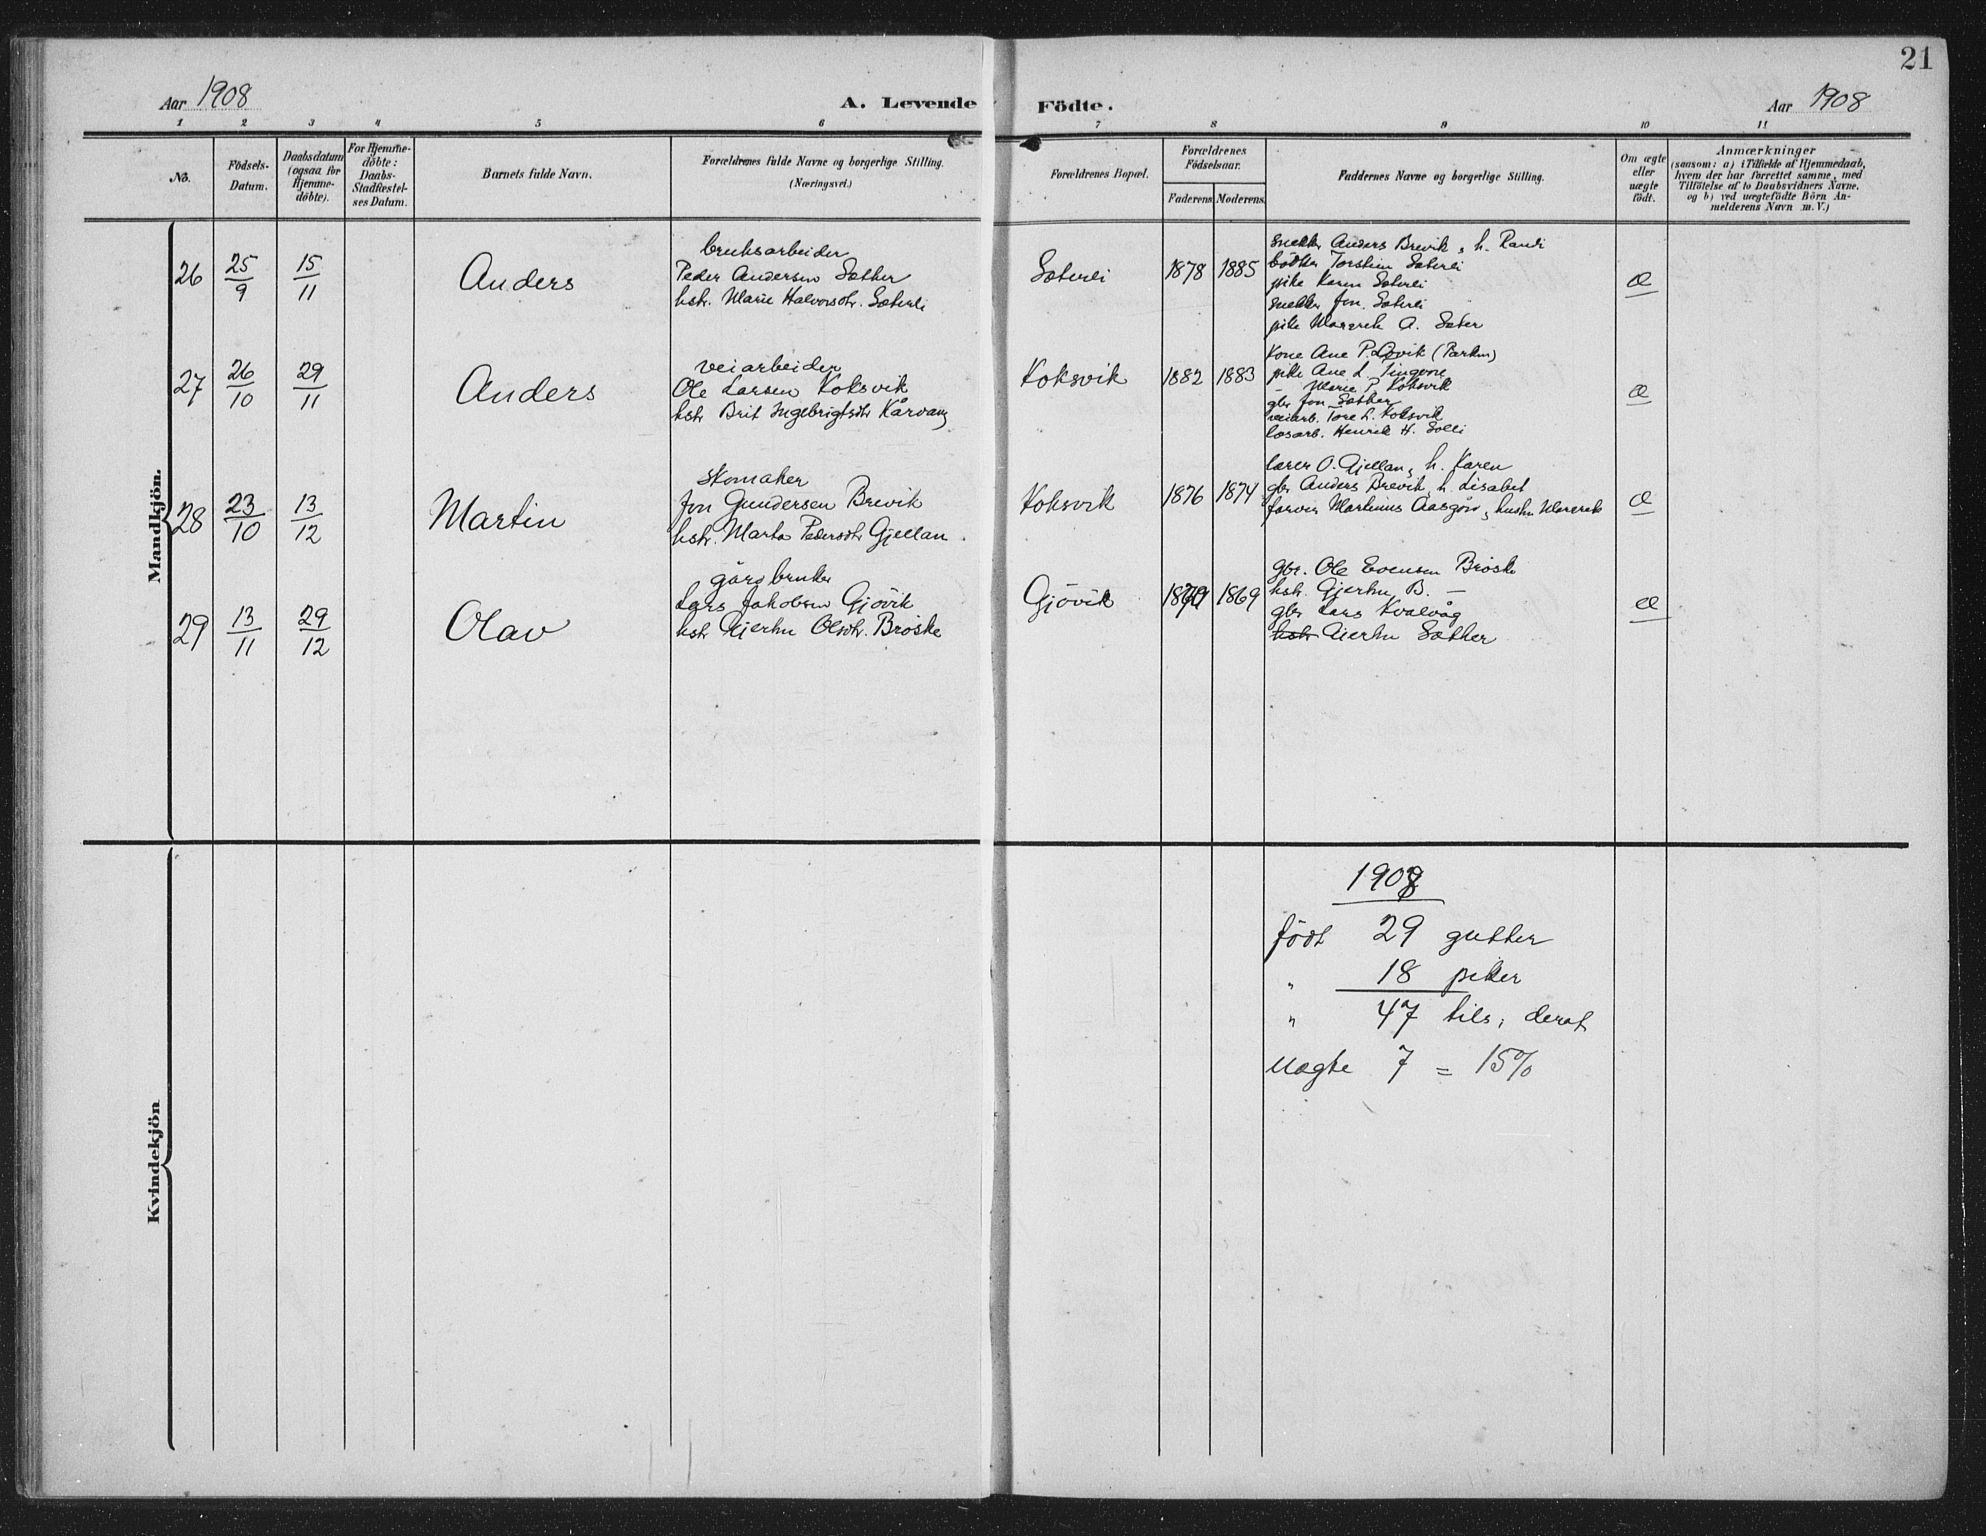 21
Aar 1908
A. Levende Födte.
Aar 1908
1 2 3 4 5 6 7 8 9 10 11
No.
Födsels-Datum.
Daabsdatum (ogsaa for Hjemme-döbte).
For Hjemme-döbte: Daabs-Stadfæstel-ses Datum.
Barnets fulde Navn.
Forældrenes fulde Navne og borgerlige Stilling. (Næringsvei.)
Forældrenes Bopæl.
Forældrenes Födselsaar.
Faderens Moderens
Faddernes Navne og borgerlige Stilling.
Om ægte eller uægte födt.
Anmærkninger
(saasom: a) i Tilfælde af Hjemmedaab,
hvem der har forrettet samme, med
Tilföielse af to Daabsvidners Navne,
og b) ved uægtefödte Börn An-
melderens Navn m. V.)
Mandkjön.
26 25/9 15/11 Anders
bruksarbeider
Peder Andersen Sæther
hstr. Marie Halvorsdtr. Sæterli
Sæterli 1878 1885
snekker Anders Brevik, h. Randi
bödker Torstein Sæterli
pike Karen Sæterli
snekker Jon Sæterli
pike Marerek A. Sæter
æ
27 26/10 29/11 Anders
veiarbeider
Ole Larsen Koksvik
hstr. Brit Ingebrigtsdtr Kårvang
Koksvik 1882 1883
Kone Ane P. Lövik
pike Ane L. Tingvoll
– Marie P. Koksvik
gbr Jon Sæther
veiarb. Tore L. Koksvik
løsarb. Henrik H. Solli
æ
28 23/10 13/12 Martin
skomaker
Jon Gundersen Brevik
hstr. Marta Pedersdtr Gjellan.
Koksvik 1876 1874
lærer O. Gjellan, h. Karen
gbr Anders Brevik, h. Lisabet
farver Martinus Aasgård, hustru Marerek
æ
29 13/11 29/12 Olav
gårdbruker
Lars Jakobsen Gjövik
hstr Gjertru Olsdtr. Bröske
Gjövik 1870 1869
gbr. Ole Evensen Bröske
hstr. Gjertru B. –
gbr Lars Kvalvåg
hstr Gjertru Sæther
æ
Kvindekjön
1908
födt 29 gutter
" 18 piker
" 47 tils, derat
uægte 7 = 15%